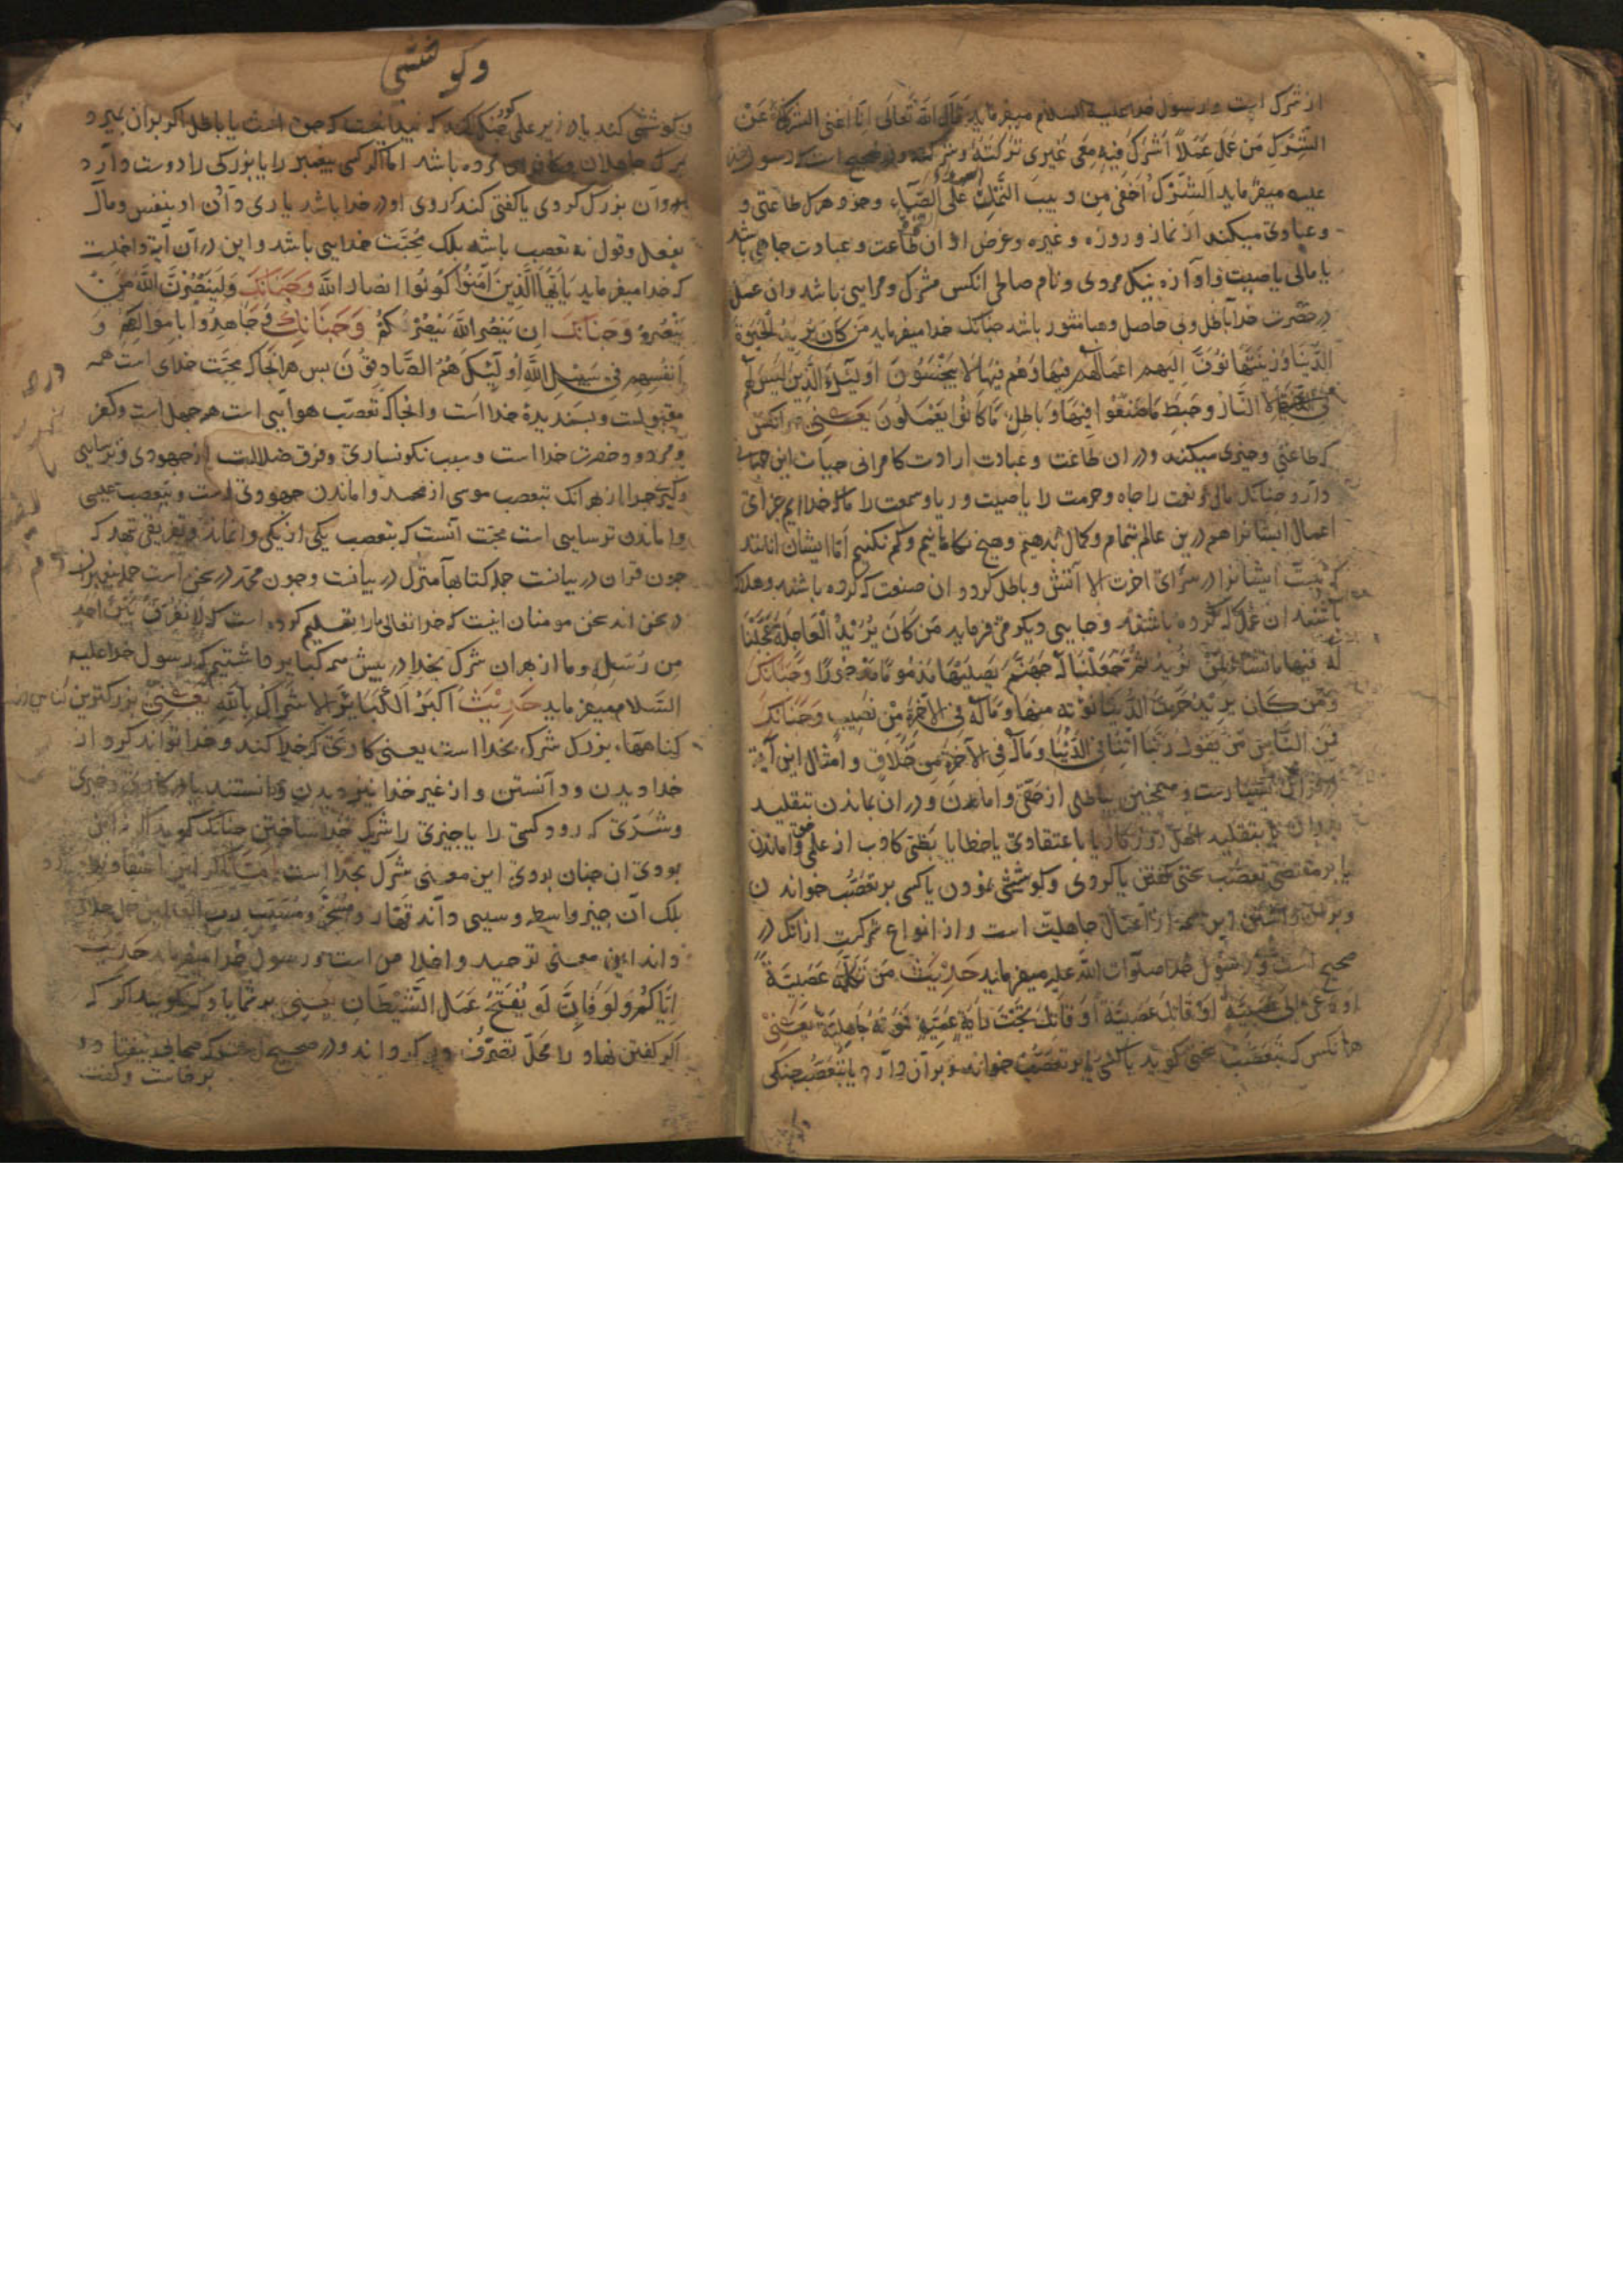 از شرک است و رسول خدا علیه السلام میفرماید قال الله تعالی انا اغنی الشرکاء عن
الشرک من عمل عملا اشرک فیه معی غیری ترکته و شرکه و در صحیح است که رسول خدا
علیه میفرماید الشرک اخفی من دبیب النمل علی الصفا و هر طاعتی و
و عبادتی میکند از نماز و روزه و غیره و غرض او ازان طاعت و عبادت جاهی باشد
یا مالی یا صیت و آوازه نیک مردی و نام صالحی انکس مشرک و مرایی باشد وان عمل
در حضرت خدا باطل و بی حاصل و هبا منثور باشد جنانک خدا میفرماید من کان یرید الحیوة
الدنیا و زینتها نوف الیهم اعمالهم فیها و هم فیها لا یبخسون اولیک الذین لیس لهم
فی الاخرة الا النار و حبط ما صنعوا فیها و باطل ما کانوا یعملون یعنی هر انکس
که طاعتی و خیری میکند و در ان طاعت و عبادت ارادت کامرانی حیات این جهانی
دارد جنانک مالی و نعمت را جاه و حرمت را یا صیت و ریا و سمعت را ما که خداایم جزای
اعمال ایشانرا هم درین عالم تمام و کمال بدهیم و هیچ نکاهانیم و کم نکنیم اما ایشان انانند
که نیست ایشانرا در سرای اخرت الا آتش و باطل کردد ان صنعت که کرده باشند و هلاک
باشد ان عمل که کرده باشند و جایی دیکر می فرماید من کان یرید العاجلة عجلنا
له فیها ما نشاء لمن نرید ثم جعلنا له جهنم یصلیها مذموما مدحورا و جنانک
و من کان یرید حرث الدنیا نؤته منها و ماله فی الآخرة من نصیب و جنانک
فمن الناس من یقول ربنا اتنا فی الدنیا و ماله فی الآخرة من خلاق و امثال این آیة
در قرآن بسیارست و همجنین بباطلی از حقی واماندن و دران بماندن بتقلید
پدران یا بتقلید اهل روزکار یا باعتقادی یا خطا یا بظنی کاذب از علمی واماندن
یا بر مقتضی تعصب سخنی کفتن یا کردی و کوششی نمودن یا کسی بر تعصب خواندن
و بران داشتن این همه از اعمال جاهلیت است و از انواع شرکست ازانک در
صحیح است و رسول خدا صلوات الله علیه میفرماید حدیث من تکلم عصبیة
او دعی الی عصبیة او قاتل عصبیة او قاتل تحت رایة عمیة فموته جاهلیة یعنی
هرانکس که بتعصب سخنی کوید یا کسی را بر تعصب خواند و بر آن دارد یا بتعصب جنکی
و کوششی
و کوششی کند یا در زیر علمی جنک کند که نمیدانست که حق است یا باطل اکر بران بمیرد
مرک جاهلان و کافران مرده باشد اما اکر کسی بیغمبر را یا بزرکی را دوست دارد
و آن بزرک کردی یا کفتی کند کردی او در خدا باشد یاری دادن او بنفس و مال
بفعل و قول نه تعصب باشد بلک محبت خدایی باشد و این در آن آیة داخلست
که خدا میفرماید یا ایها الذین آمنوا کونوا انصار الله و جنانک و لینصرن الله من
ینصره و جنانک ان ینصر الله ینصرکم و جنانک و جاهدوا باموالهم و
انفسهم فی سبیل الله اولیک هم الصادقون بس هرانجا که محبت خدای است همه
مقبولست و بسندیدهٔ خدا است وانجا که تعصب هوایی است هر جهل است و کفر
و مردود حضرت خدا است و سبب نکونساری و فرق ضلالت از جهودی و ترسایی
و کبری جرا از بهر انک بتعصب موسی از محمد واماندن جهودی است و بتعصب عیسی
واماندن ترسایی است محبت آنست که بتعصب یکی از یکی وانماند و تفریقی نهد که
جون قران در بیانست جمله کتابها منزل در بیانست و جون محمد در سخن است جمله بیغمبران
در سخن اند سخن مومنان اینست که خدا تعالی مارا تعلیم کرده است که لا نفرق بین احد
من رسله و ما از بهر ان شرک بخدا در بیش همه کبایر داشتیم که رسول خدا علیه
السلام میفرماید حدیث اکبر الکبایر الاشراک بالله یعنی بزرکترین
کناهها بزرک شرک بخدا است یعنی کاری که خدا کند و خدا تواند کرد از
خدا دیدن و دانستن و از غیر خدا نیز دیدن و دانستن یا در کاری و خیری
و شری که رود کسی را یا جیزی را شریک خدا ساختن جنانک کوید اکر این
بودی ان جنان بودی این معنی شرک بخدا است
بلک آن جیز واسطه و سببی داند قهار و مسخر و مسبب رب العالمین جل جلاله
داند این معنی توحید و اخلاص است و رسول خدا میفرماید حدیث
ایاکم و لو فان لو یفتح عمل الشیطان یعنی بر شما باد که نکویید اکر که
اکر کفتن نهاد را محل تصرف دیو کرداند و در صحیح است که صحابی بیفتاد و
برخاست و کفت